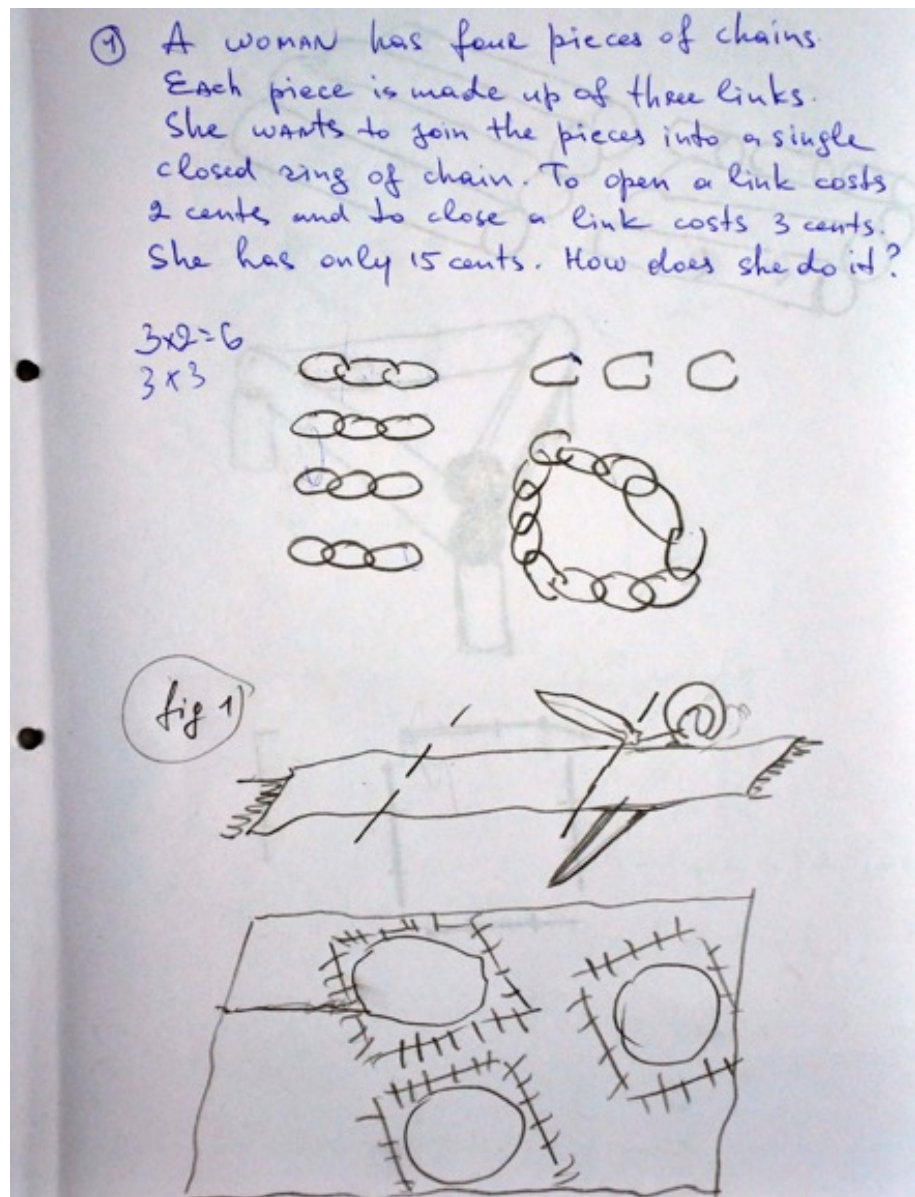 ① A WOMAN has four pieces of chains.
Each piece is made up of three links.
She wants to join the pieces into a single
closed ring of chain. To open a link costs
2 cents and to close a link costs 3 cents.
She has only 15 cents. How does she do it?
3x2=6
3x3
fig 1